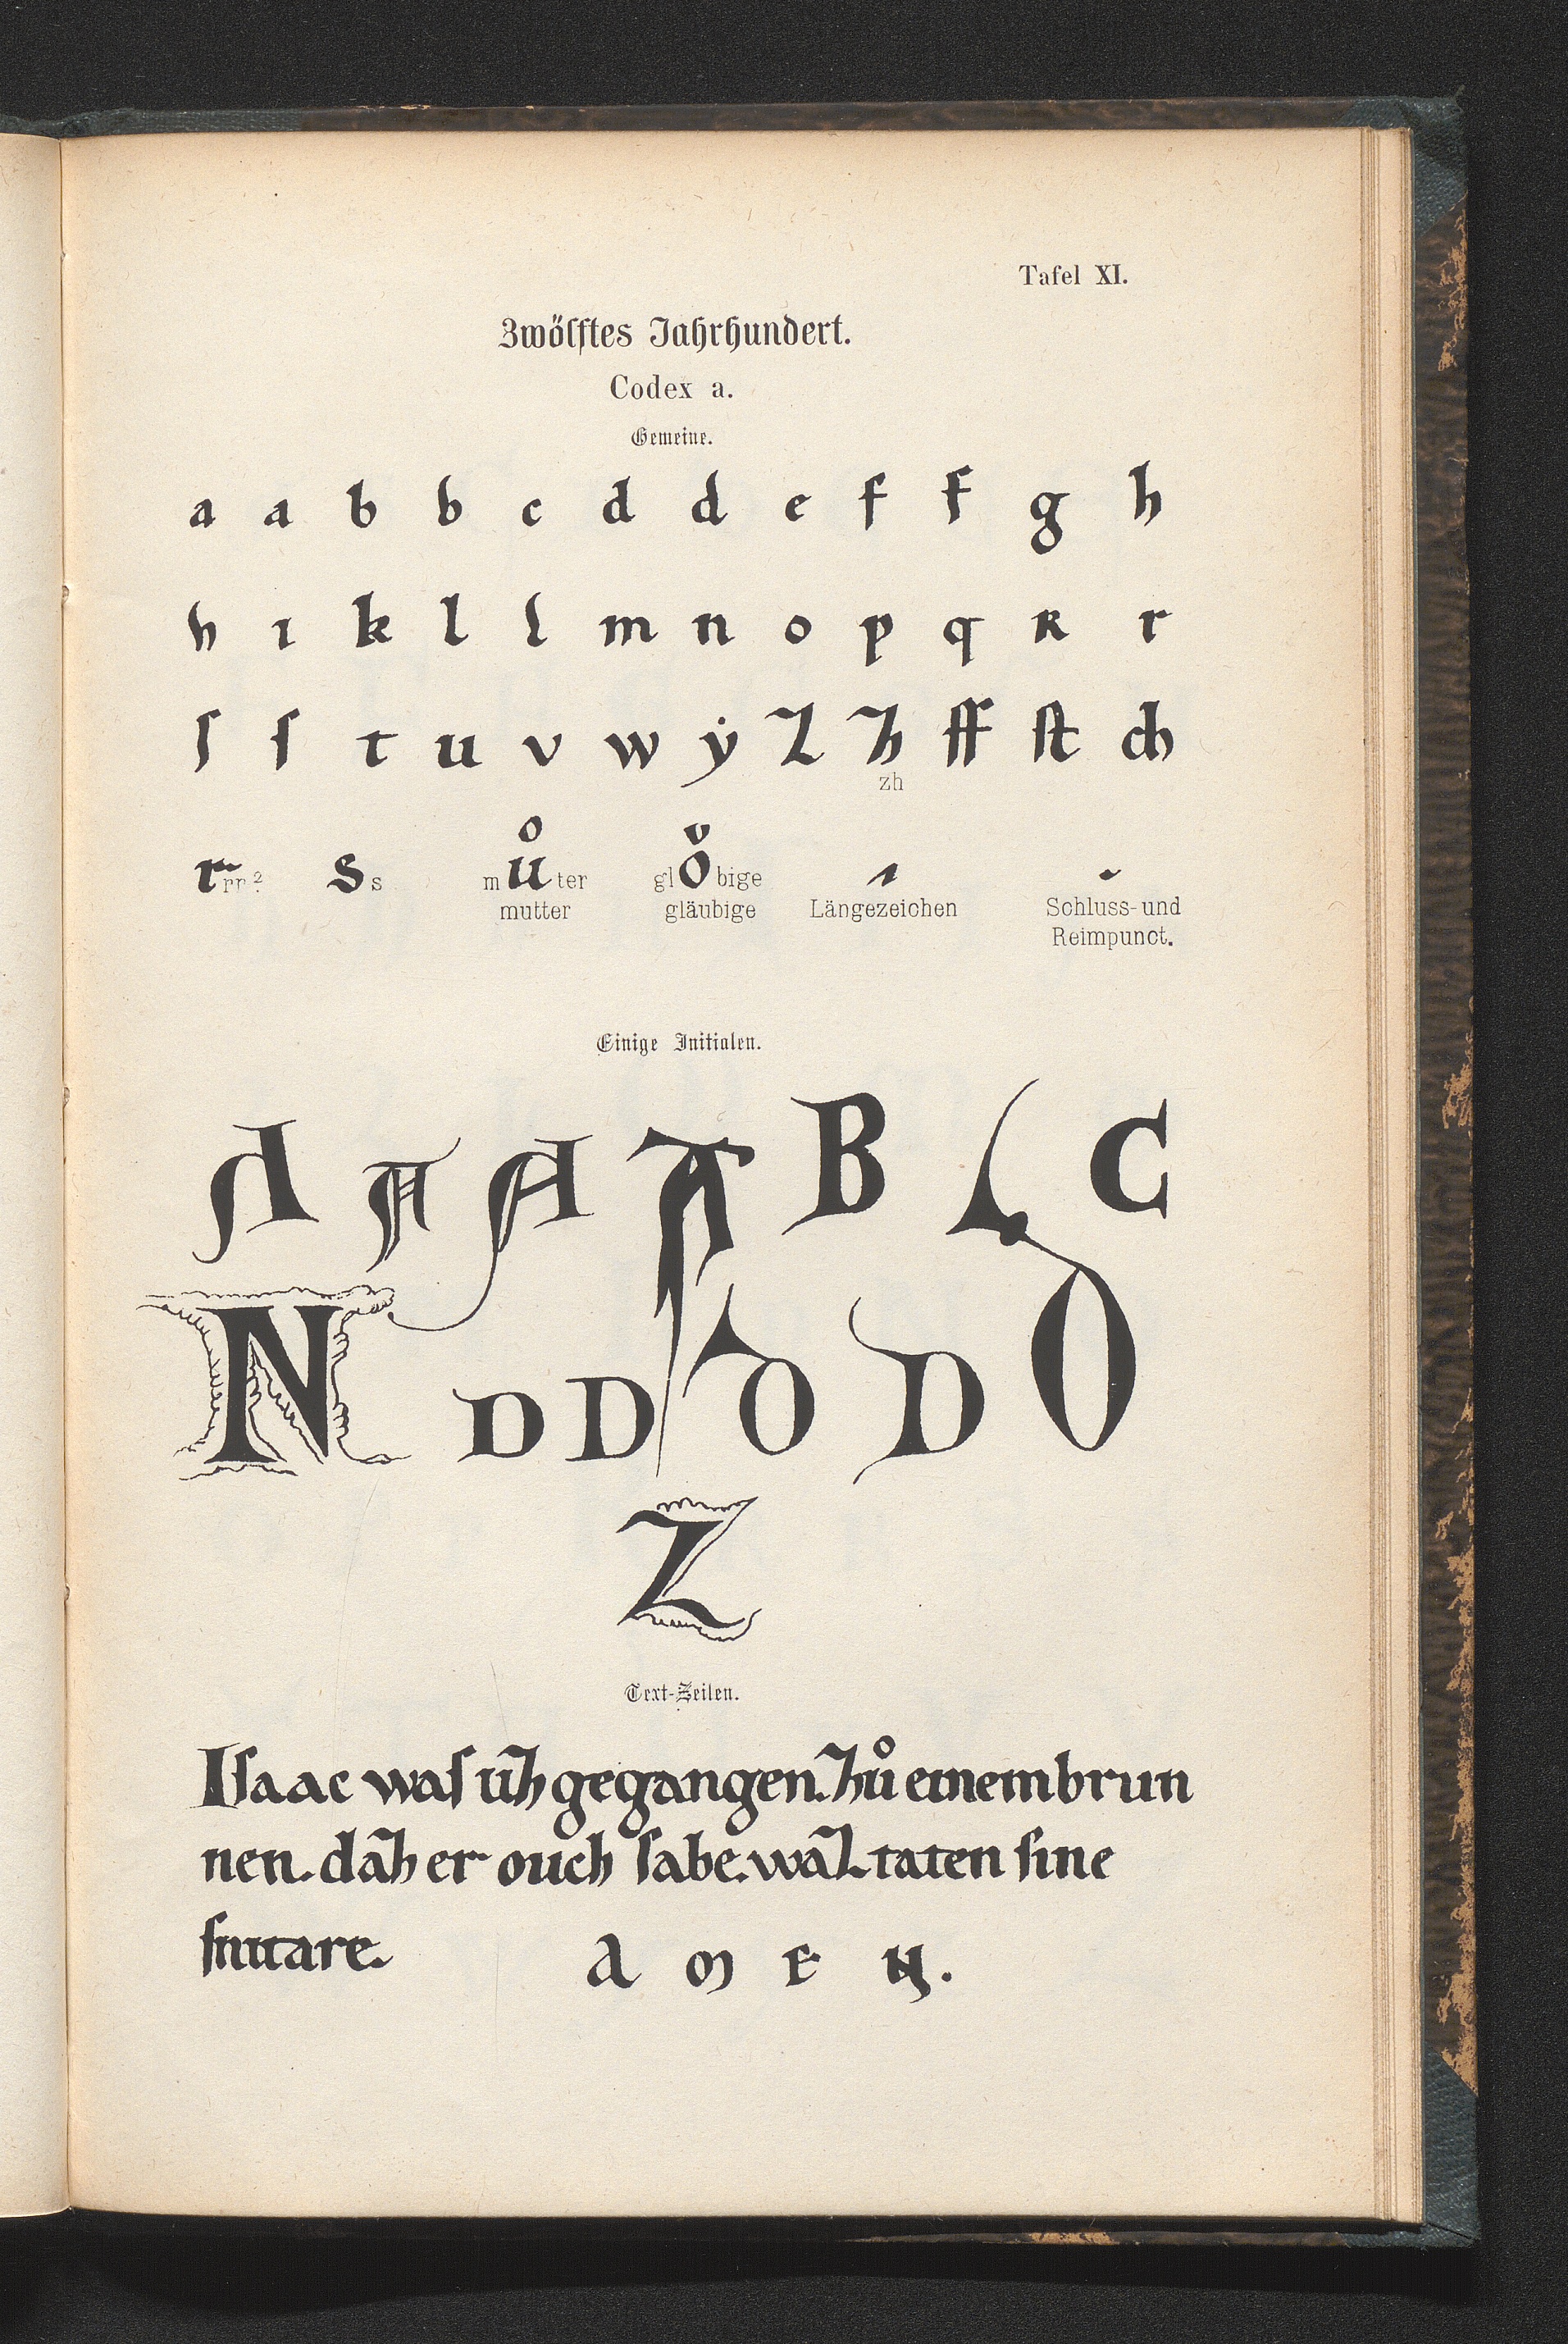 Tafel XI.
Zwölftes Jahrhundert.
Codex a.
Gemeine.
a a b b c d d e f f g h
h ı k l l m n o p q ʀ r
ſ ſ t u v w ẏ z zh ff ſt ch
zh
r rr? s s můter glo&#x36e;bige
mutter gläubige Längezeichen Schluss- und
Reimpunct.
Einige Initialen.
A A A A B C
N D D D
Z
Text-Zeilen.
Iſaac waſ uzh gegangen. zhů einem brun
nen. dazh er ouch ſabe. waz taten ſine
A M E N.